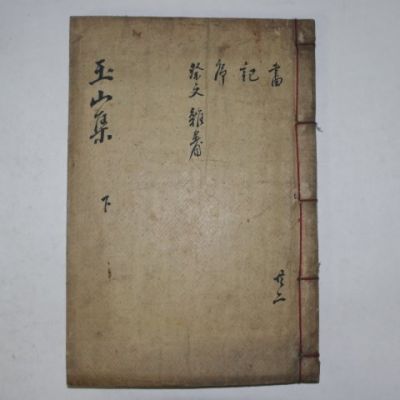 玉山集
下
書
記
序
跋文 雜著
共二